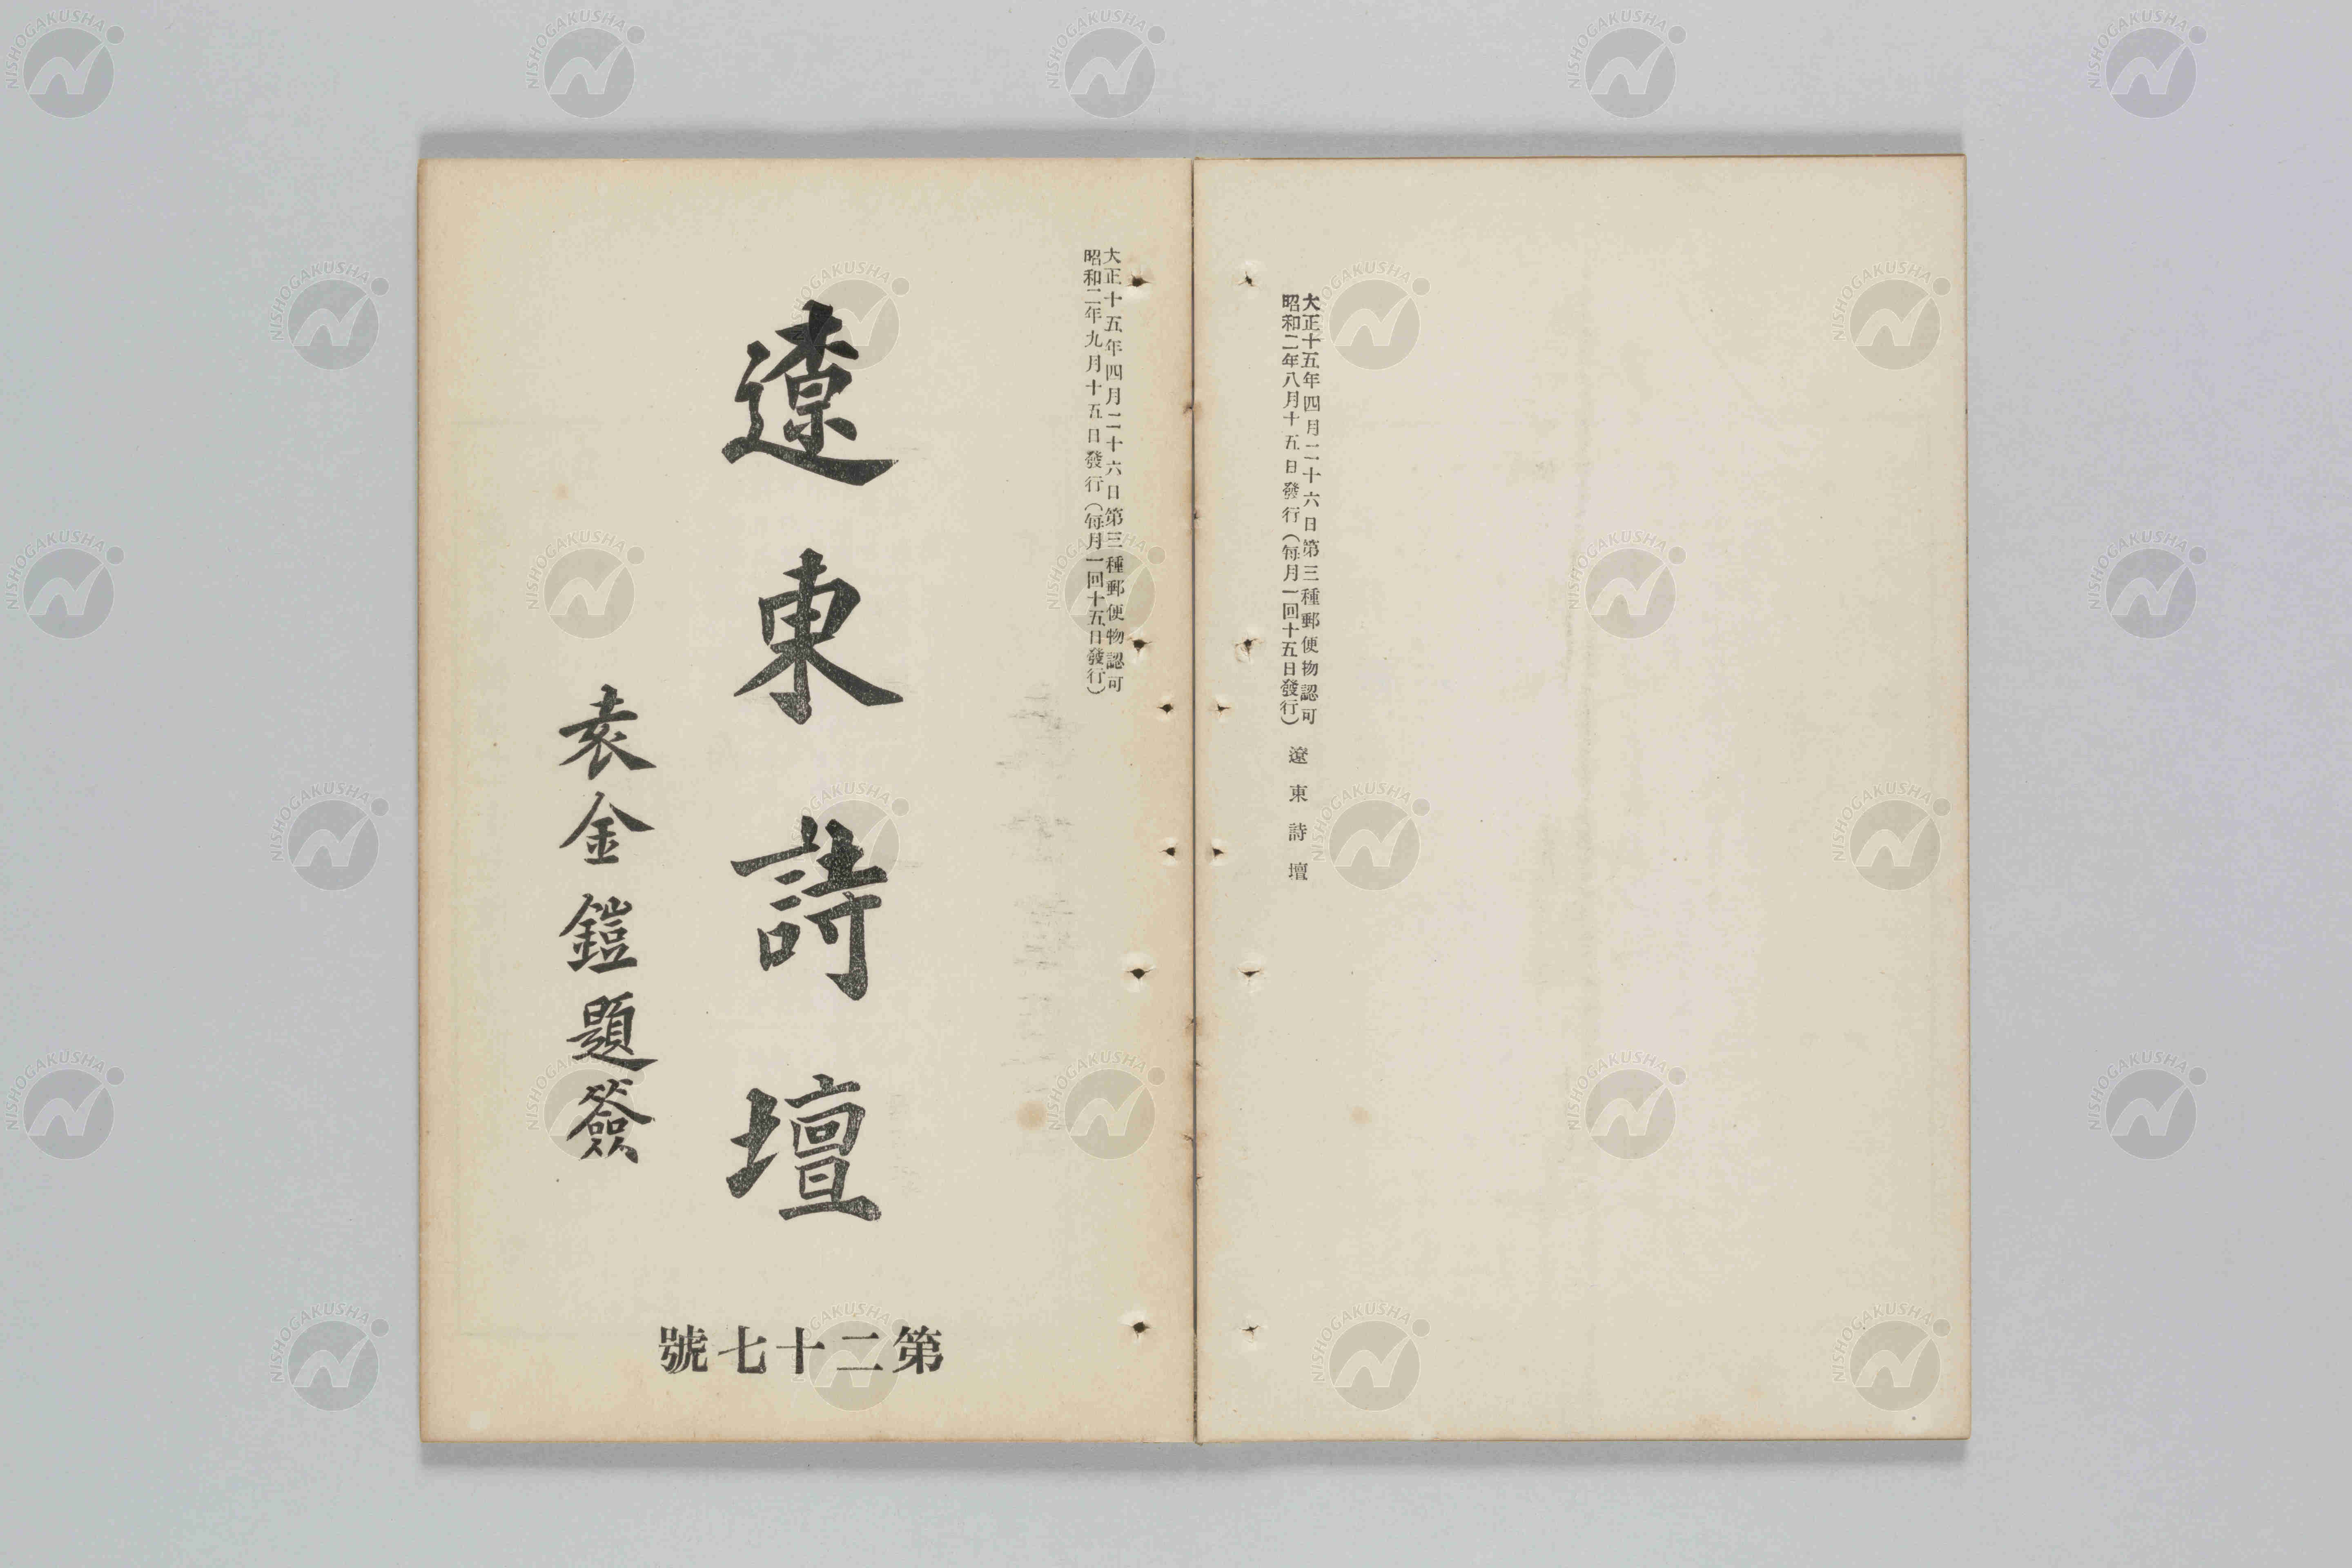 大正十五年四月二十六日第三種郵便物認可
昭和二年八月十五日發行（每月一回十五日發行）
遼東詩壇
大正十五年四月二十六日第三種郵便物認可
昭和二年九月十五日發行（每月一回十五日發行）
遼東詩壇
袁金鎧題簽
第二十七號
NISHOGAKUSHA